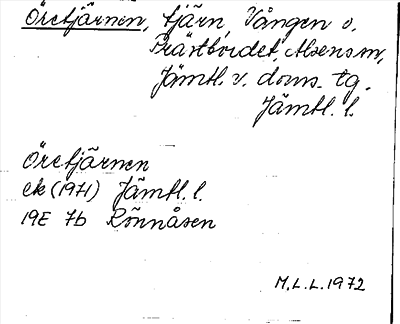 Öretjärnen, tjärn, Vången o.
Prästbordet, Alsens sn,
Jämtl. v. doms. tg.
Jämtl. l.
Öretjärnen
ek (1971) Jämtl. l.
19E 7b Rönnåsen
M.L.L. 1972